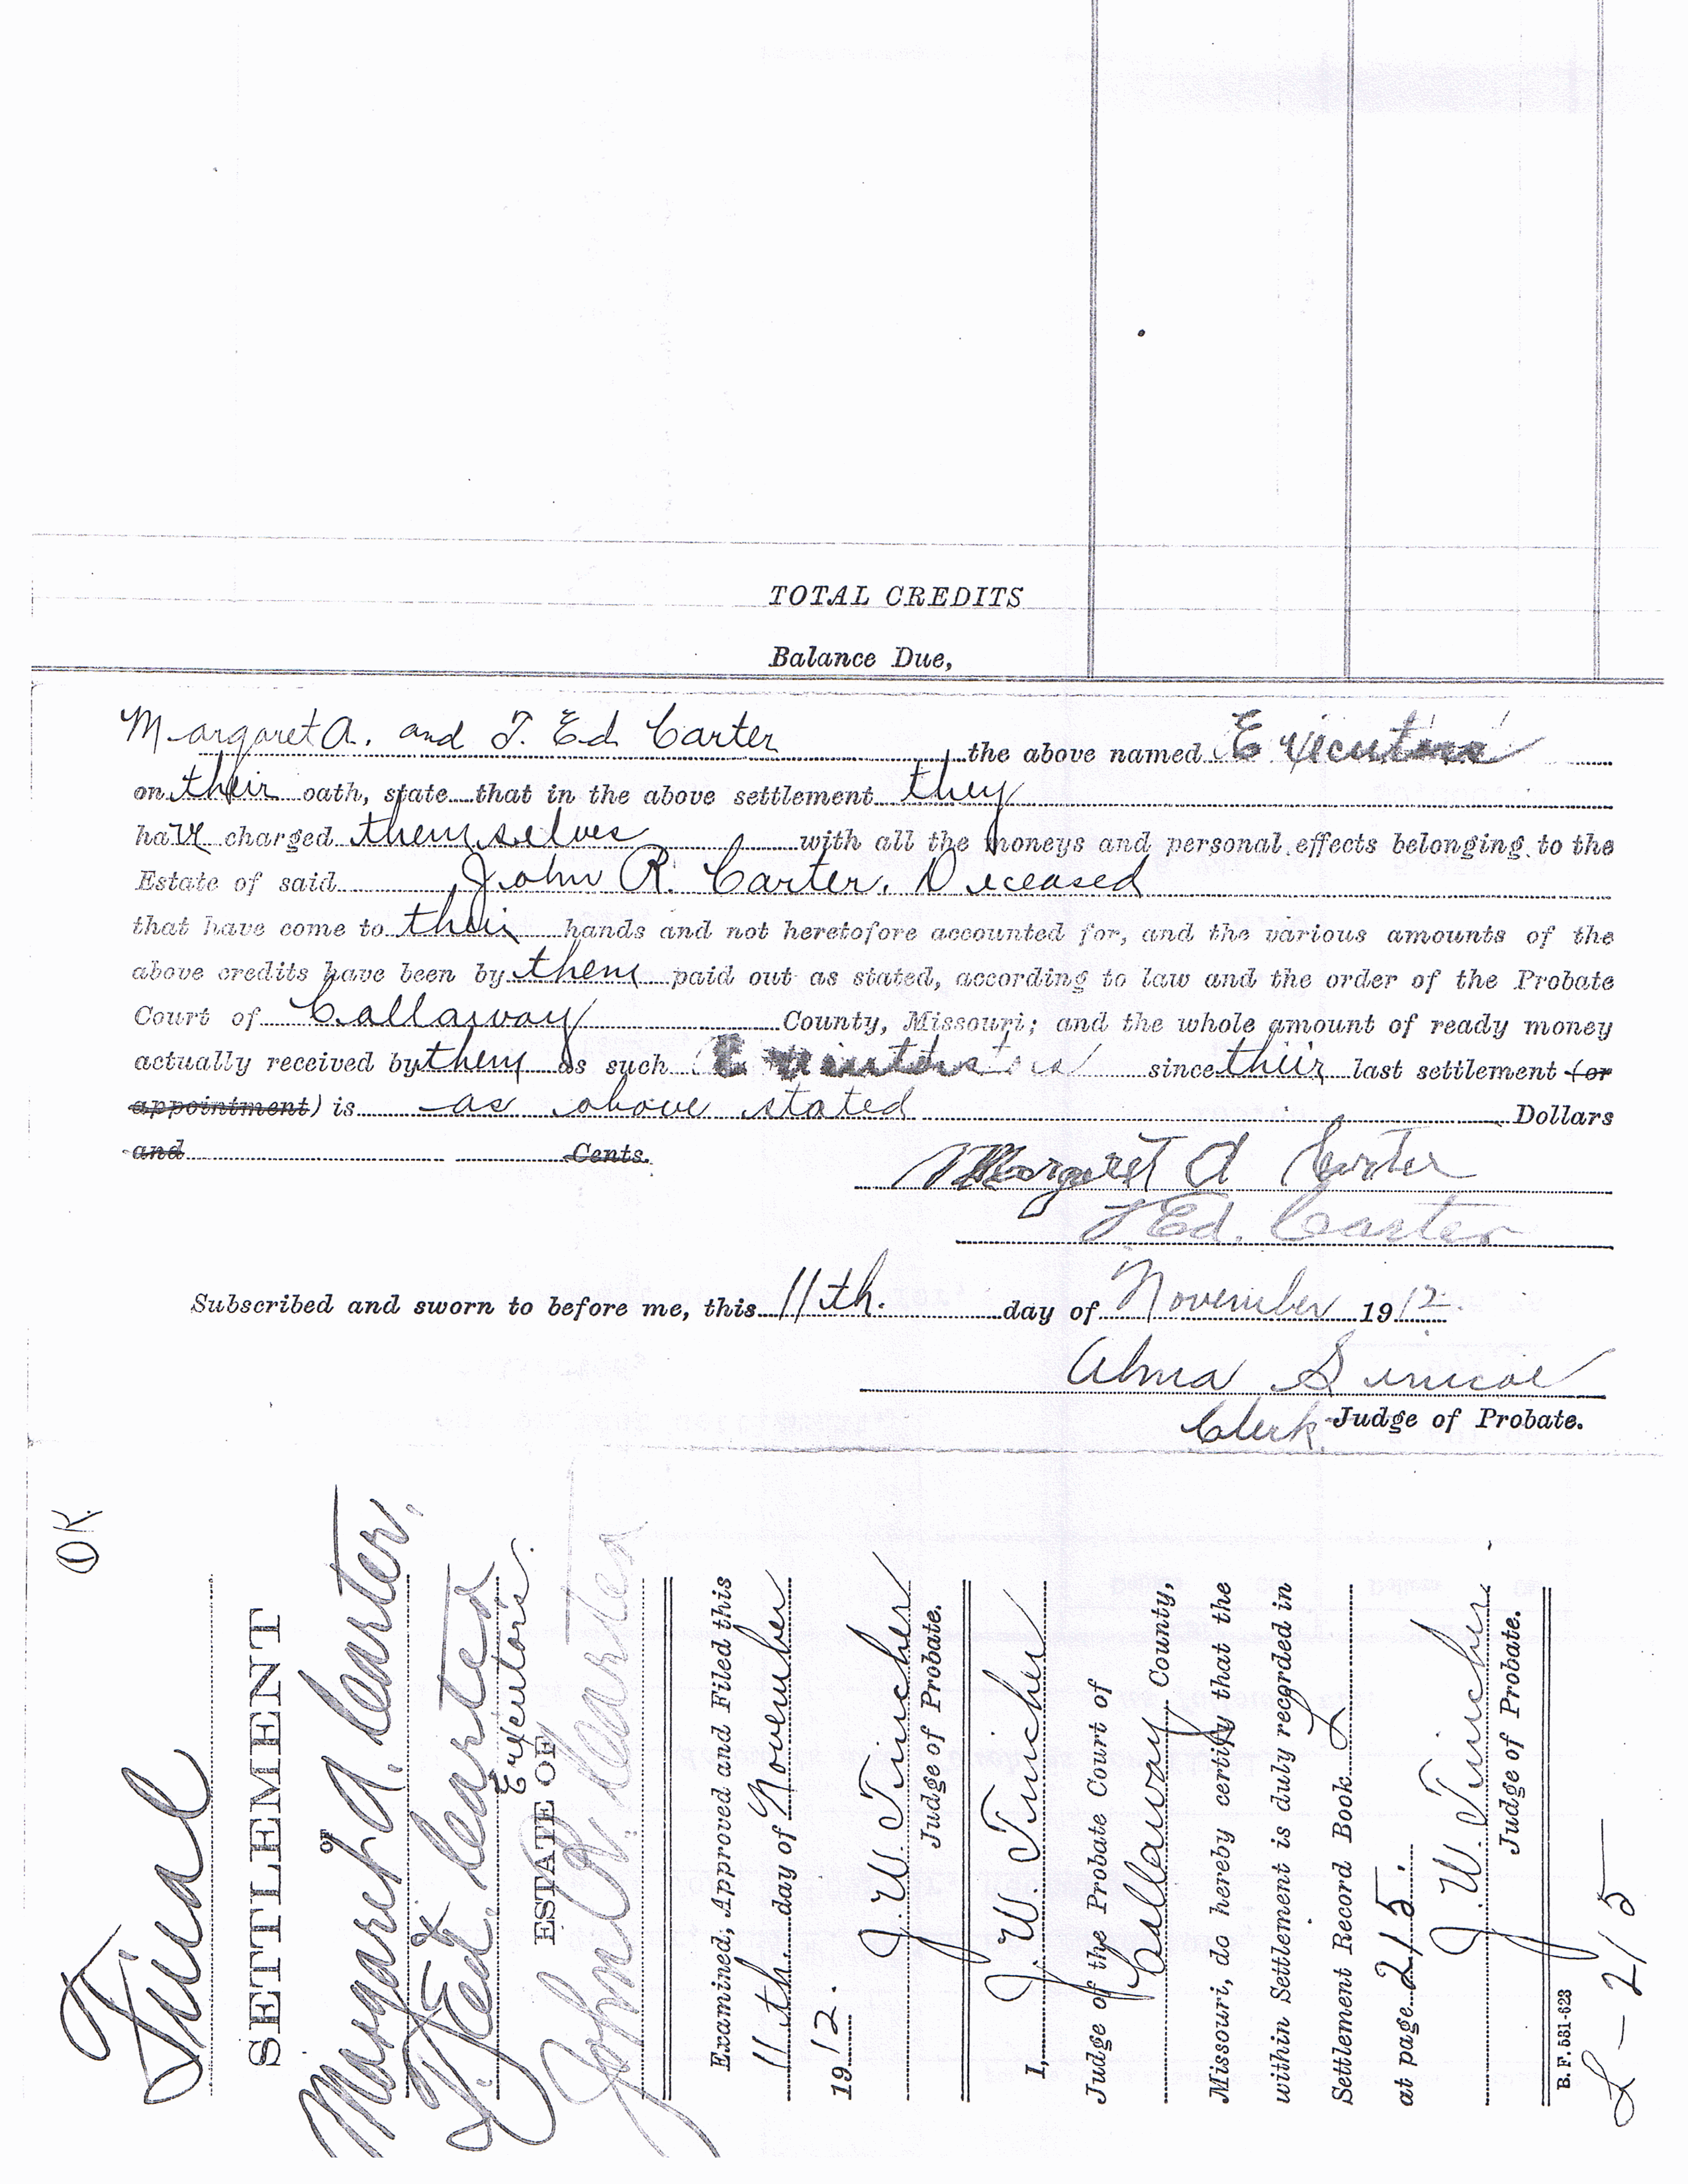 TOTAL CREDITS
Balance Due,
Margaret A. and T. Ed Carter the above named Executors
on their oath, state that in the above settlement they
have charged themselves with all the moneys and personal effects belonging to the
Estate of said John R. Carter, Deceased
that have come to their hands and not heretofore accounted for, and the various amounts of the
above credits have been by them paid out as stated, according to law and the order of the Probate
Court of Callaway County, Missouri; and the whole amount of ready money
actually received by them as such Executors since their last settlement (or
appointment) is as above stated Dollars
and Cents.
Margaret A Carter
T Ed. Carter
Subscribed and sworn to before me, this 11th. day of November 1912.
Alma
Clerk Judge of Probate.
OK
Final
SETTLEMENT
OF
Margaret A. Carter,
T. Ed. Carter
Executors.
ESTATE OF
John R. Carter
Examined, Approved and Filed this
11th. day of November
1912.
J. W. Tincher
Judge of Probate.
I, J. W. Tincher
Judge of the Probate Court of
Callaway County,
Missouri, do hereby certify that the
within Settlement is duly recorded in
Settlement Record Book L
at page 215.
J. W. Tincher
Judge of Probate.
B. F. 531-623
L - 215